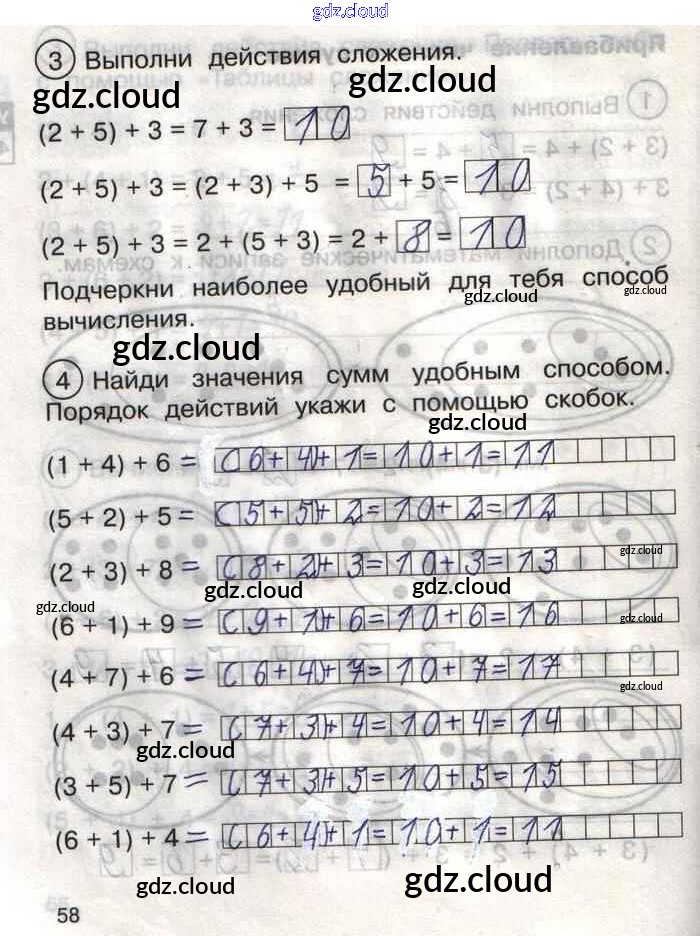 gdz.cloud
3 Выполни действия сложения.
gdz.cloud gdz.cloud
(2 + 5) + 3 = 7 + 3 = 10
(2 + 5) + 3 = (2 + 3) + 5 = 5 + 5 = 10
(2 + 5) + 3 = 2 + (5 + 3) = 2 + 8 = 10
Подчеркни наиболее удобный для тебя способ
gdz.cloud gdz.cloud
вычисления.
gdz.cloud
4 Найди значения сумм удобным способом.
Порядок действий укажи с помощью скобок.
gdz.cloud
(1 + 4) + 6 = (6+4)+1=10+1=11
(5 + 2) + 5 = (5+5)+2=10+2=12
gdz.cloud
(2 + 3) + 8 = (8+2)+3=10+3=13
gdz.cloud gdz.cloud
gdz.cloud
(6 + 1) + 9 = (9+1)+6=10+6=16
gdz.cloud
(4 + 7) + 6 = (6+4)+7=10+7=17
gdz.cloud
(4 + 3) + 7 = (7+3+4=10+4=14
gdz.cloud gdz.cloud
(3 + 5) + 7 = (7+3+5=10+5=15
(6 + 1) + 4 = (6+4)+1=10+1=11
gdz.cloud gdz.cloud
58